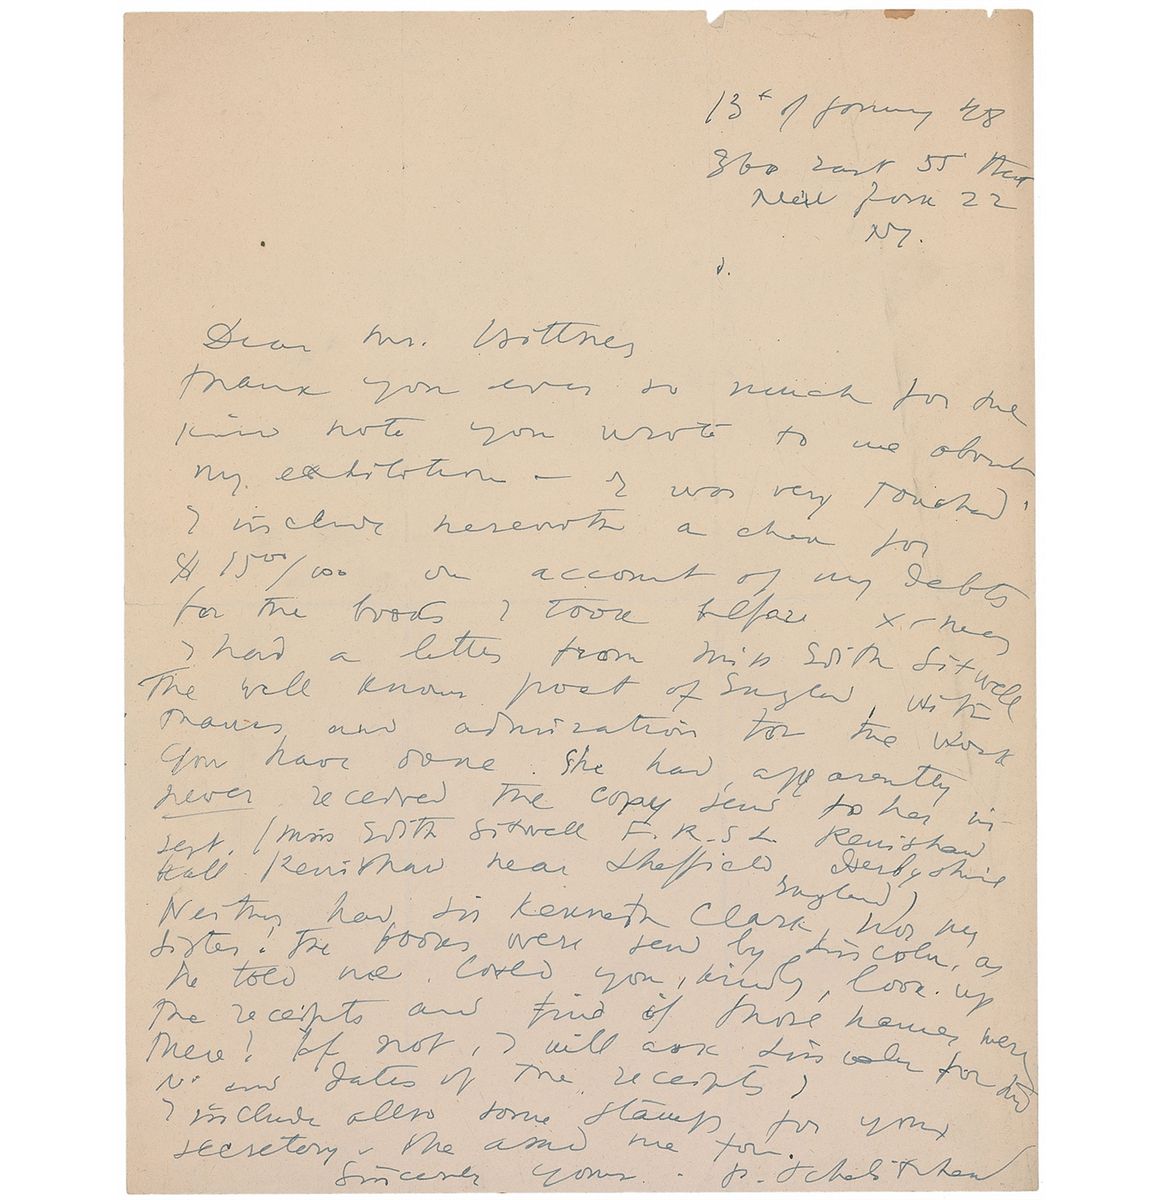 13t of January 48
360 East 55 Street
New York 22
NY.
Dear Mr. Wittner
thank you ever so much for the
kind note you wrote to me about
my exhibition – I was very touched.
I include herewith a check for
$ 15 00/000 on account of my debts
for the books I took before x-mas
I had a letter from Miss Edith Sitwell
The well known poet of England with
thanks and admiration for the work
you have done. She had apparently
never received the copy send to her in
sept. (Miss Edith Sitwell F.R.S.L. Renishaw
Hall Renishaw near Sheffield Derbyshire
England)
Neither had Sir Kenneth Clark nor my
sister! The books were send by Lincoln, as
he told me. Could you, kindly, look up
the receipts and find if those names were
there! If not, I will ask Lincoln for the
No and dates of the receipts,
I include allso some stamps for your
secretory. She asked me for.
Sincerely yours. P. Tchelitchew